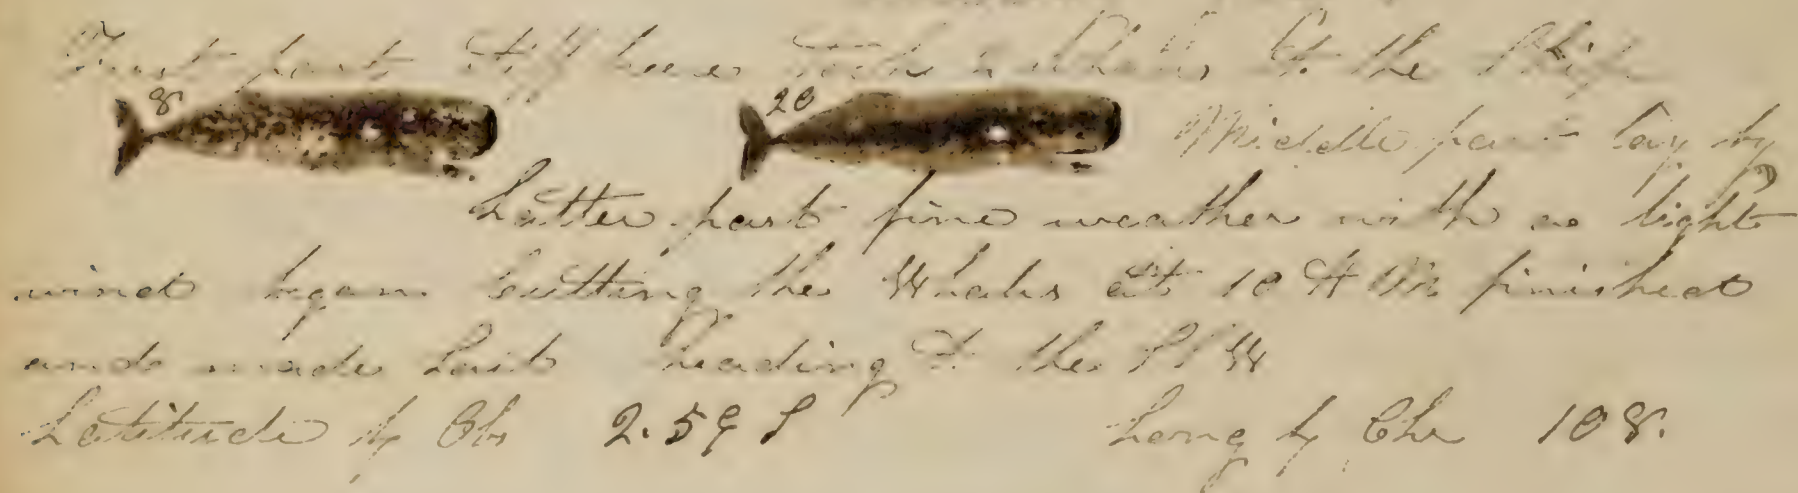 First part stiff breeze Took 2 Whales to the Ship
8 20 Middle part lay by
Latter part fine weather with a light
wind began Cutting the Whales at 10 A M finished
and made Sail heading to the S W
Latitude by Obs 2.59 S Long by Chr 108.